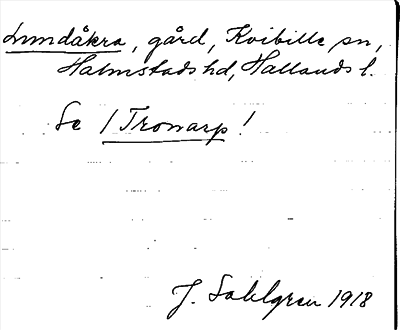 Lundåkra, gård, Kvibille sn,
Halmstads hd, Hallands l.
Se 1 Tronarp!
J. Sahlgren 1918